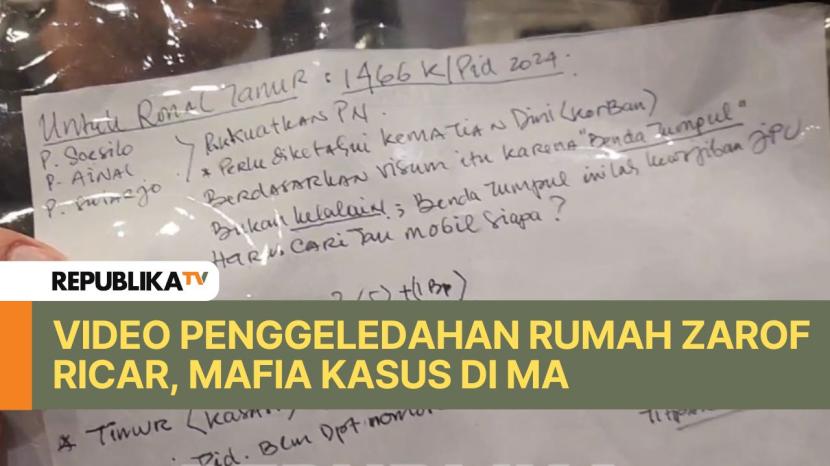 Untuk Ronal Tanur : 1466 K/Pid 2024.
P. Soesilo
P. AiNAL
P. Sutarjo
Kukuatkan PN.
* Perlu diketahui KEMATIAN Dini (Korban)
BERDASARKAN visum itu karena "Benda Tumpul"
Bukan kelalain; Benda Tumpul inilah kewajiban JPU
Harus CARI Tau mobil Siapa?
2 (5) + (1 Bp)
REPUBLIKA TV
VIDEO PENGGELEDAHAN RUMAH ZAROF
RICAR, MAFIA KASUS DI MA
* TIMUR (Kasasi)
Pid. Blm Dpt nomor